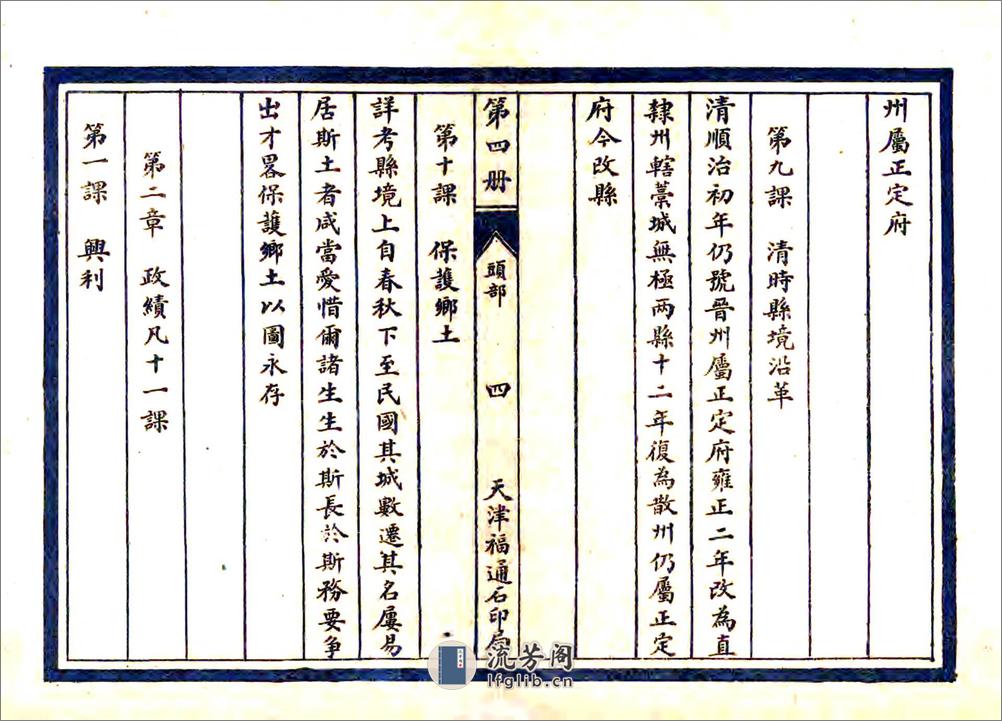 州屬正定府
第九課 清時縣境沿革
清順治初年仍號晉州屬正定府雍正二年改為直
隸州轄藁城無極两縣十二年復為散州仍屬正定
府今改縣
第四册 頭部 四 天津福通石印局
第十課 保護鄉土
詳考縣境上自春秋下至民國其城數遷其名屢易
居斯土者咸當愛惜爾諸生生於斯長於斯務要爭
出才畧保護鄉土以圖永存
第二章 政績凡十一課
第一課 興利
流芳阁
lfglib.cn